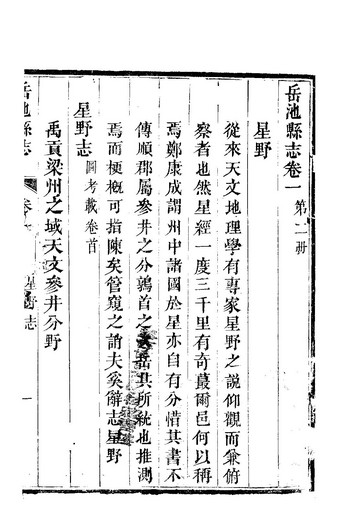 岳池縣志卷一 第二册
星野
從來天文地理學有專家星野之說仰觀而兼俯
察者也然星經一度三千里有奇蕞爾邑何以稱
焉鄭康成謂州中諸國於星亦自有分惜其書不
傳順郡屬參井之分鶉首之岳其所統也推測
焉而梗槪可指陳矣管窺之誚夫奚辭志星野
星野志 圖考載卷首
禹貢梁州之域天文參井分野
岳池縣志
卷
星野志
一